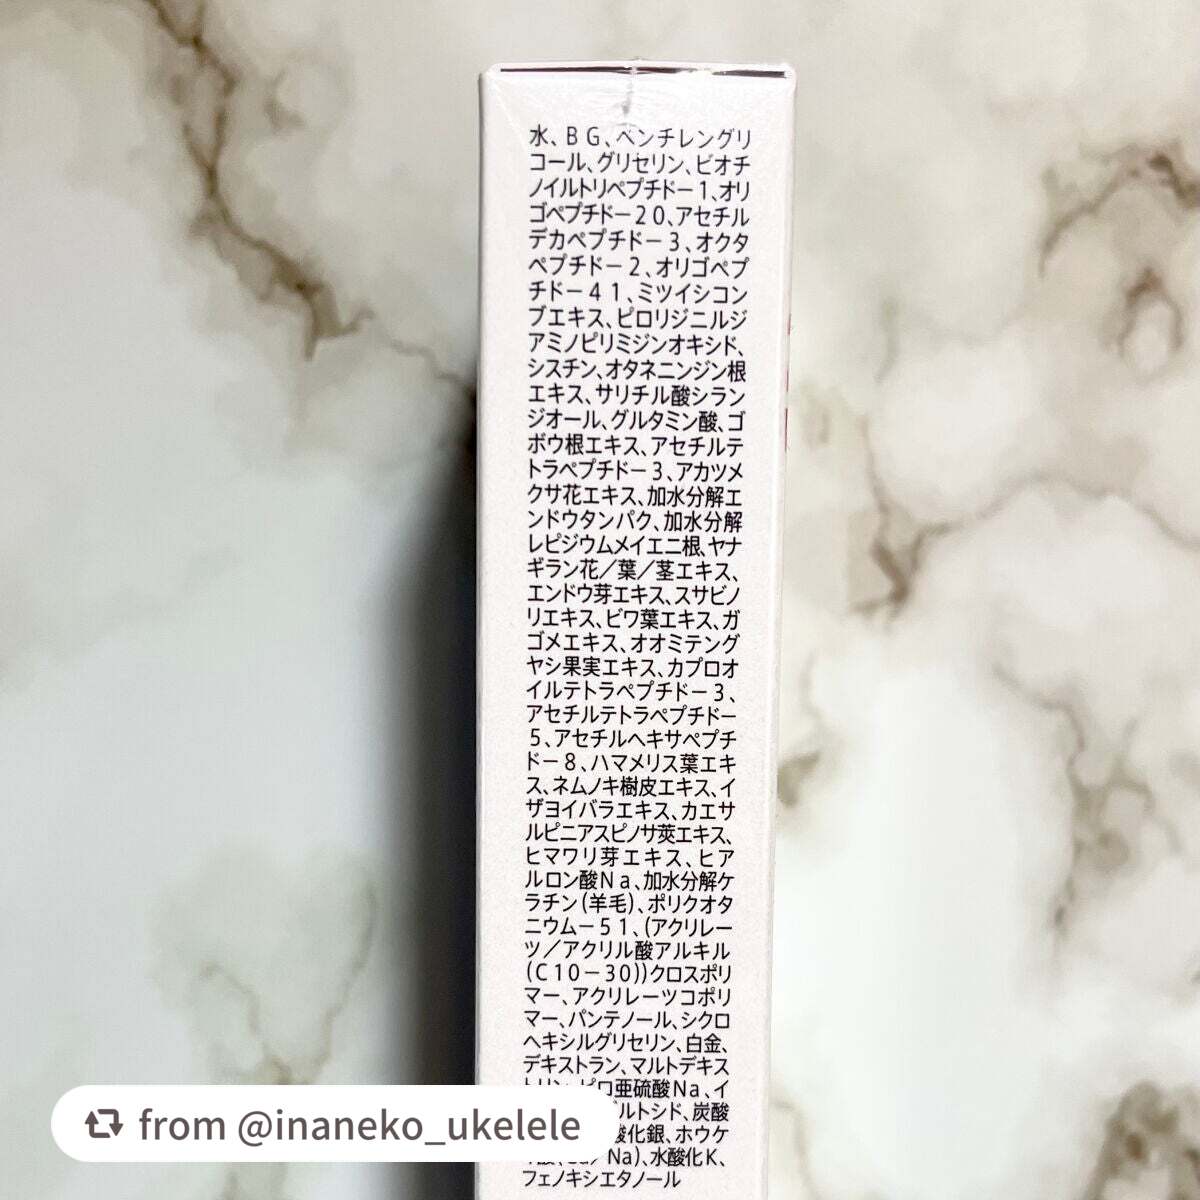 水、BG、ペンチレングリ
コール、グリセリン、ビオチ
ノイルトリペプチド－1、オリ
ゴペプチド－20、アセチル
デカペプチド－3、オクタ
ペプチド－2、オリゴペプ
チド－41、ミツイシコン
ブエキス、ピロリジニルジ
アミノピリミジンオキシド、
シスチン、オタネニンジン根
エキス、サリチル酸シラン
ジオール、グルタミン酸、ゴ
ボウ根エキス、アセチルテ
トラペプチド－3、アカツメ
クサ花エキス、加水分解エ
ンドウタンパク、加水分解
レピジウムメイエニ根、ヤナ
ギラン花／葉／茎エキス、
エンドウ芽エキス、スサビノ
リエキス、ビワ葉エキス、ガ
ゴメエキス、オオミテング
ヤシ果実エキス、カプロオ
イルテトラペプチド－3、
アセチルテトラペプチド－
5、アセチルヘキサペプチ
ド－8、ハマメリス葉エキ
ス、ネムノキ樹皮エキス、イ
ザヨイバラエキス、カエサ
ルピニアスピノサ莢エキス、
ヒマワリ芽エキス、ヒア
ルロン酸Na、加水分解ケ
ラチン(羊毛)、ポリクオタ
ニウム－51、(アクリレー
ツ／アクリル酸アルキル
(C10－30))クロスポリ
マー、アクリレーツコポリ
マー、パンテノール、シクロ
ヘキシルグリセリン、白金、
デキストラン、マルトデキス
トリン、ピロ亜硫酸Na、イ
ルトシド、炭酸
酸化銀、ホウケ
Na)、水酸化K、
フェノキシエタノール
from @inaneko_ukelele